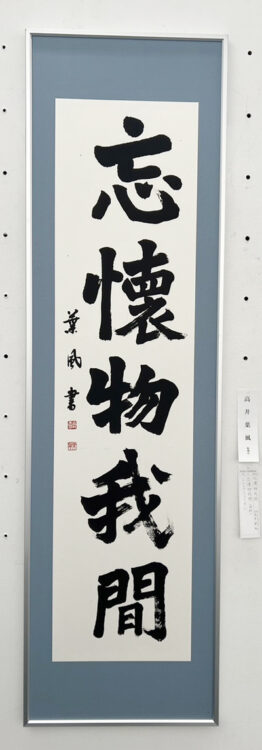 忘懐物我間
葉風書
高井葉風